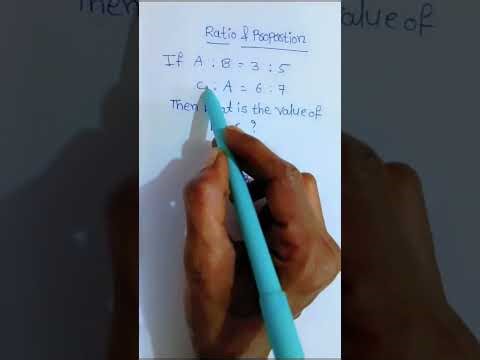 Ratio & Propostion
If A : B = 3 : 5
C : A = 6 : 7
Then is the value of
?